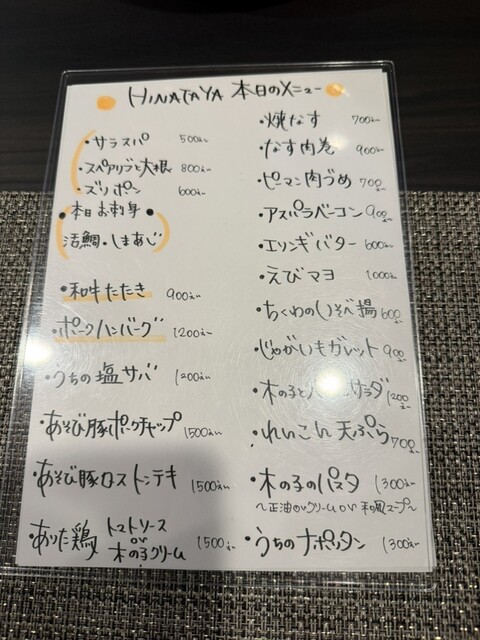 HINATAYA 本日のメニュー
・サラスパ 500
・スペアリブと大根 800
・ズリポン 600
・本日お刺身・
活鯛・しまあじ
・和牛たたき 900
・ポークハンバーグ 1200
・うちの塩サバ 1200
・あそび豚ポークチャップ 1500
・あそび豚ロストンテキ 1500
・ありた鶏 トマトソース
or
木の子クリーム 1500
・焼なす 700
・なす肉巻 900
・ピーマン肉づめ 700
・アスパラベーコン 900
・エリンギバター 600
・えびマヨ 1000
・ちくわのいそべ揚 600
・じゃがいもガレット 900
・木の子と サラダ 1200
・れんこん天ぷら 700
・木の子のパスタ 1300
〜正油orクリームor和風スープ〜
・うちのナポリタン 1300